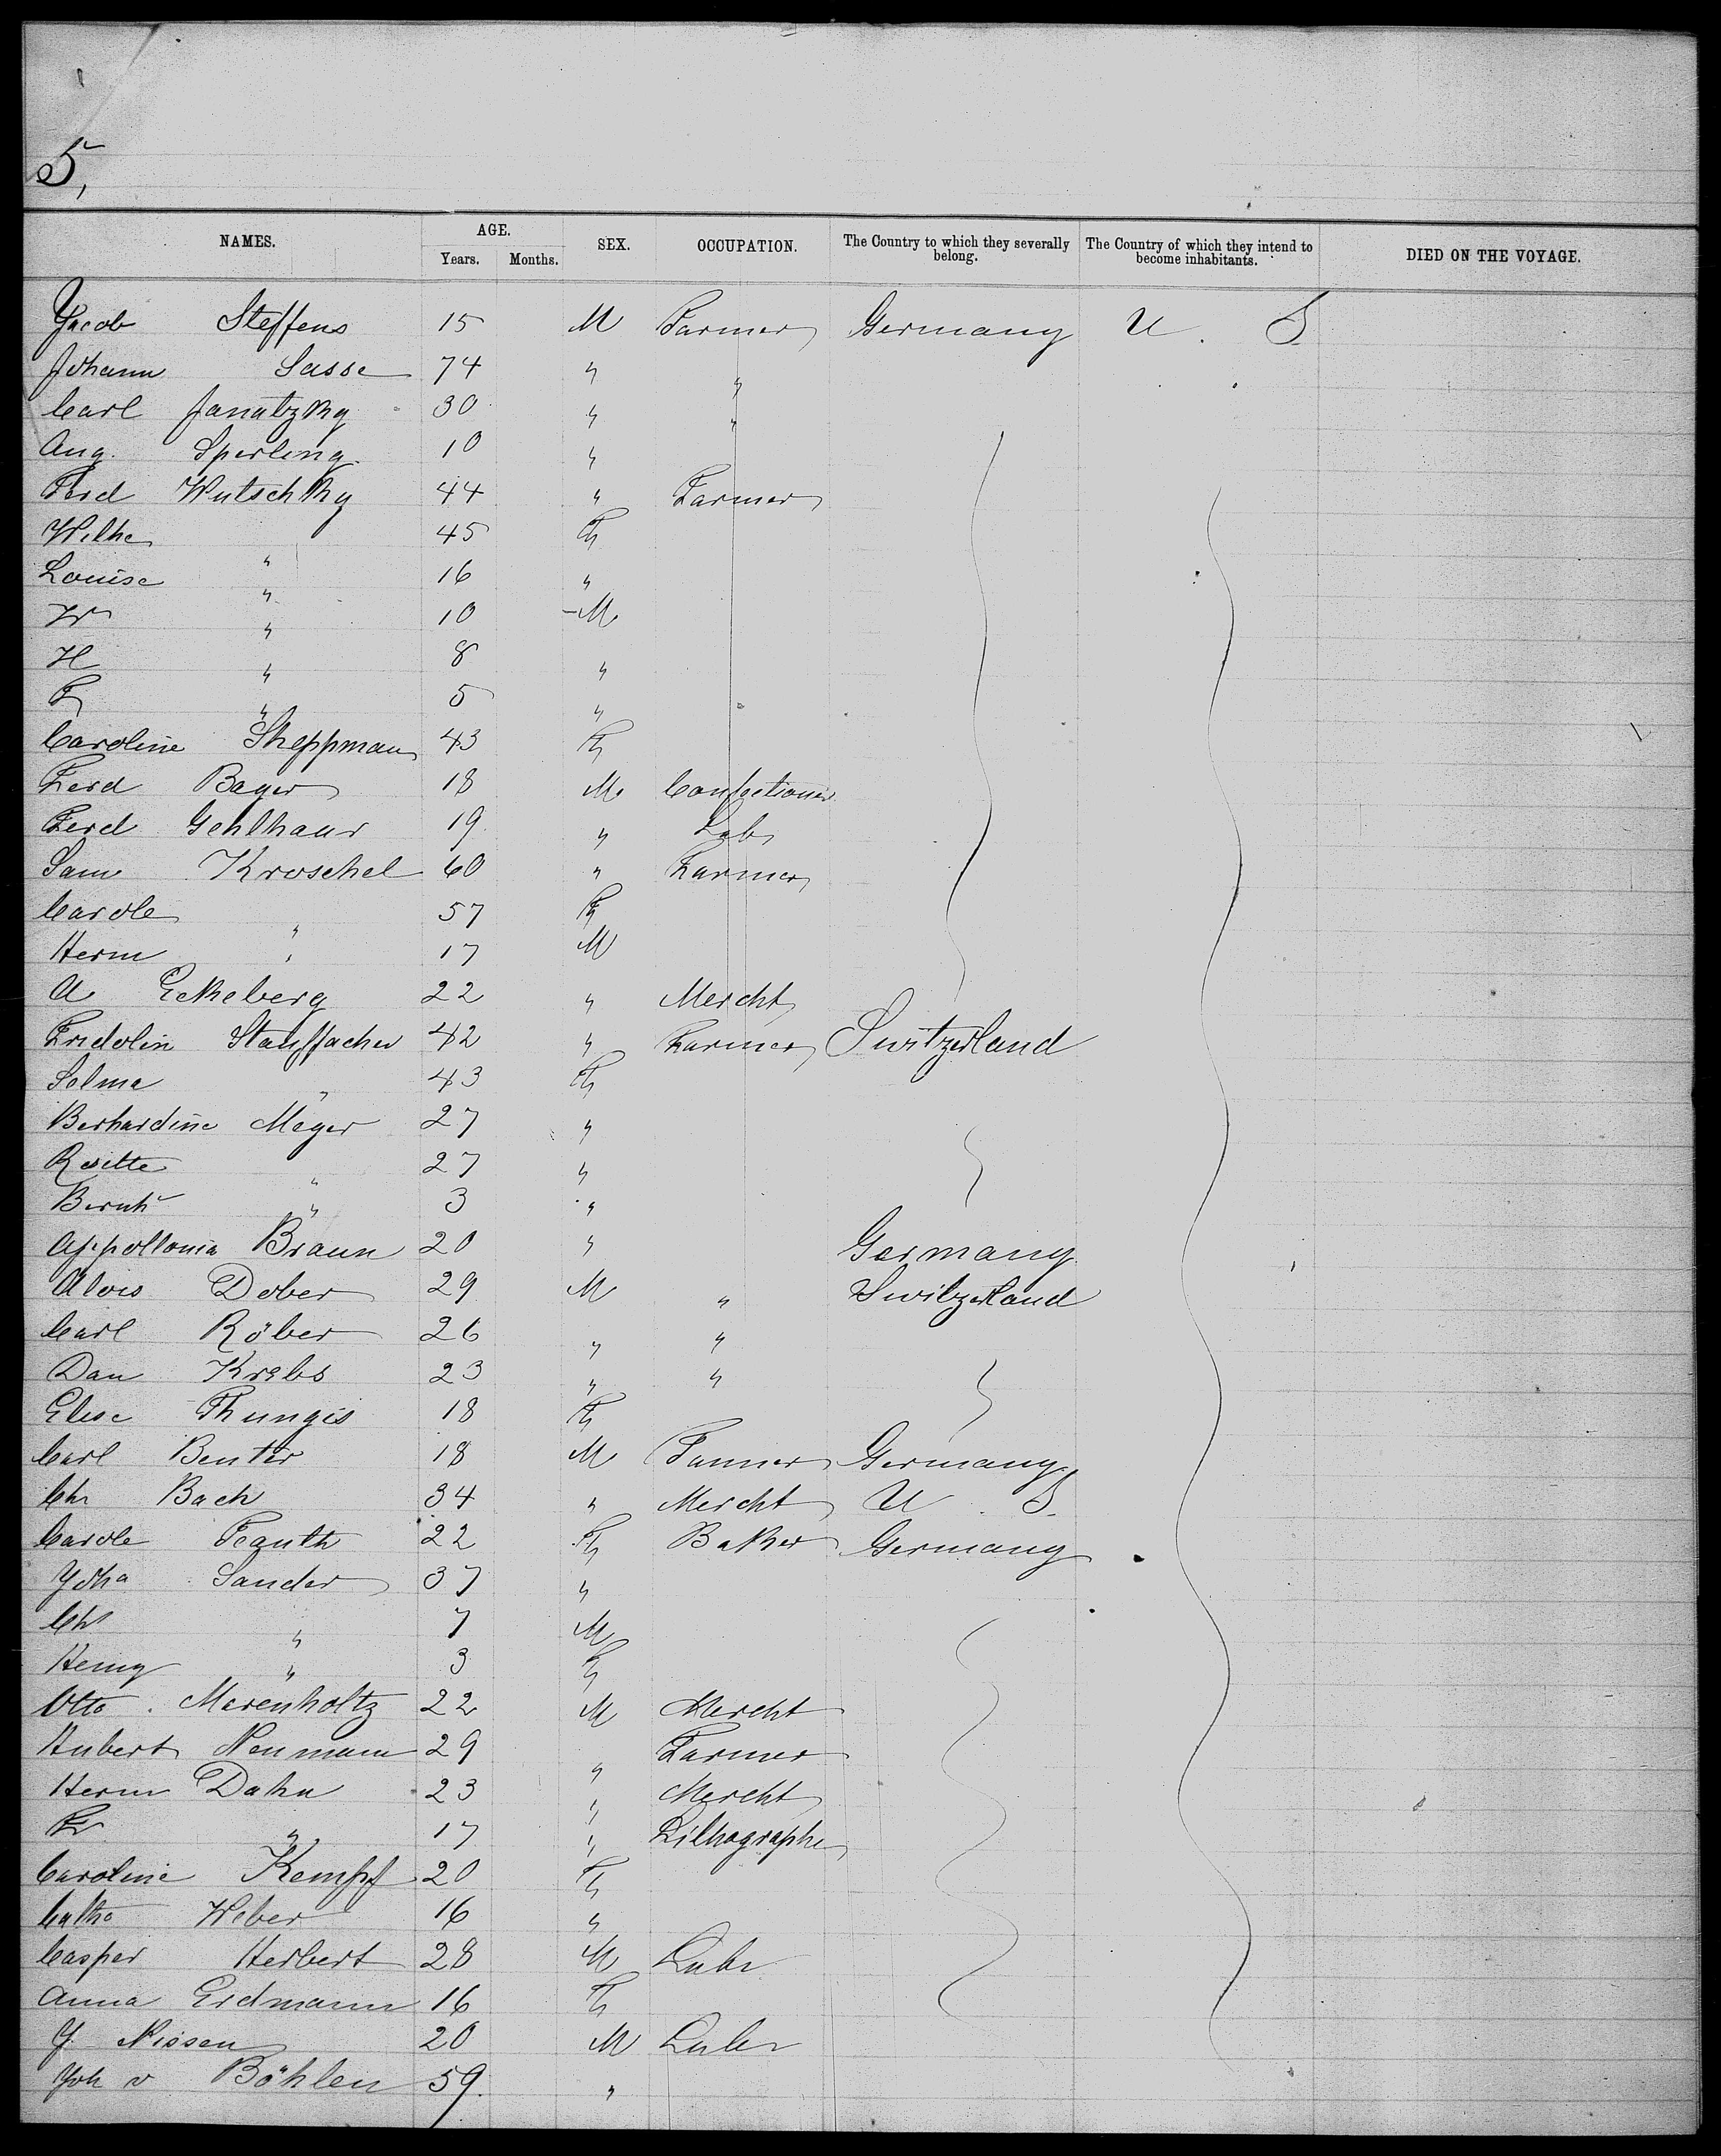 5,
NAMES. AGE. SEX. OCCUPATION. The Country to which they severally belong. The Country of which they intend to become inhabitants. DIED ON THE VOYAGE.
Years. Months.
Jacob Steffens 15 M Farmer Germany U. S
Johann Sasse 74 " "
Carl Janutzky 30 " "
Aug. Sperling 10 "
Ferd Wutschky 44 " Farmer
Wilhe " 45 F
Louise " 16 "
W " 10 M
H " 8 "
F " 5 "
Caroline Sheppman 43 F
Ferd Bayer 18 M Confectioner
Ferd Gehlhaur 19 " Lab
Sam Kroschel 60 " Farmer
Carole " 57 F
Herm " 17 M
A Eckeberg 22 " Mercht
Fridolin Stauffacher 42 " Farmer Switzerland
Selma " 43 F
Berhardine Meyer 27 "
Rosette " 27 "
Bernh " 3 "
Appollonia Braun 20 " Germany
Alois Dober 29 M " Switzerland
Carl Röber 26 " "
Dan Krebs 23 " "
Elise Thungis 18 F
Carl Benter 18 M Farmer Germany
Chr Bach 34 " Mercht U. S.
Carole Feguth 22 F Baker Germany
Joha Sander 37 "
Chr " 7 M
Henny " 3 F
Otto Marenholtz 22 M Mercht
Hubert Neumann 29 " Farmer
Herm Dahn 23 " Mercht
Fr " 17 " Lithographer
Caroline Kempf 20 F
Catha Weber 16 "
Casper Herbert 28 M Labr
Anna Erdmann 16 F
J. Nissen 20 M Labr
Joh v Böhlen 59. "